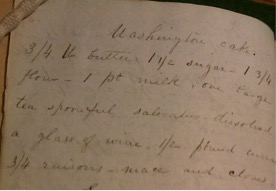 Washington cake.
3/4 lb butter 1 1/2 sugar - 1 3/4
flour - 1 pt milk, one large
tea spoonful saleratus dissolved
a glass of wine. 1/2 pound
3/4 raisins - mace and cloves